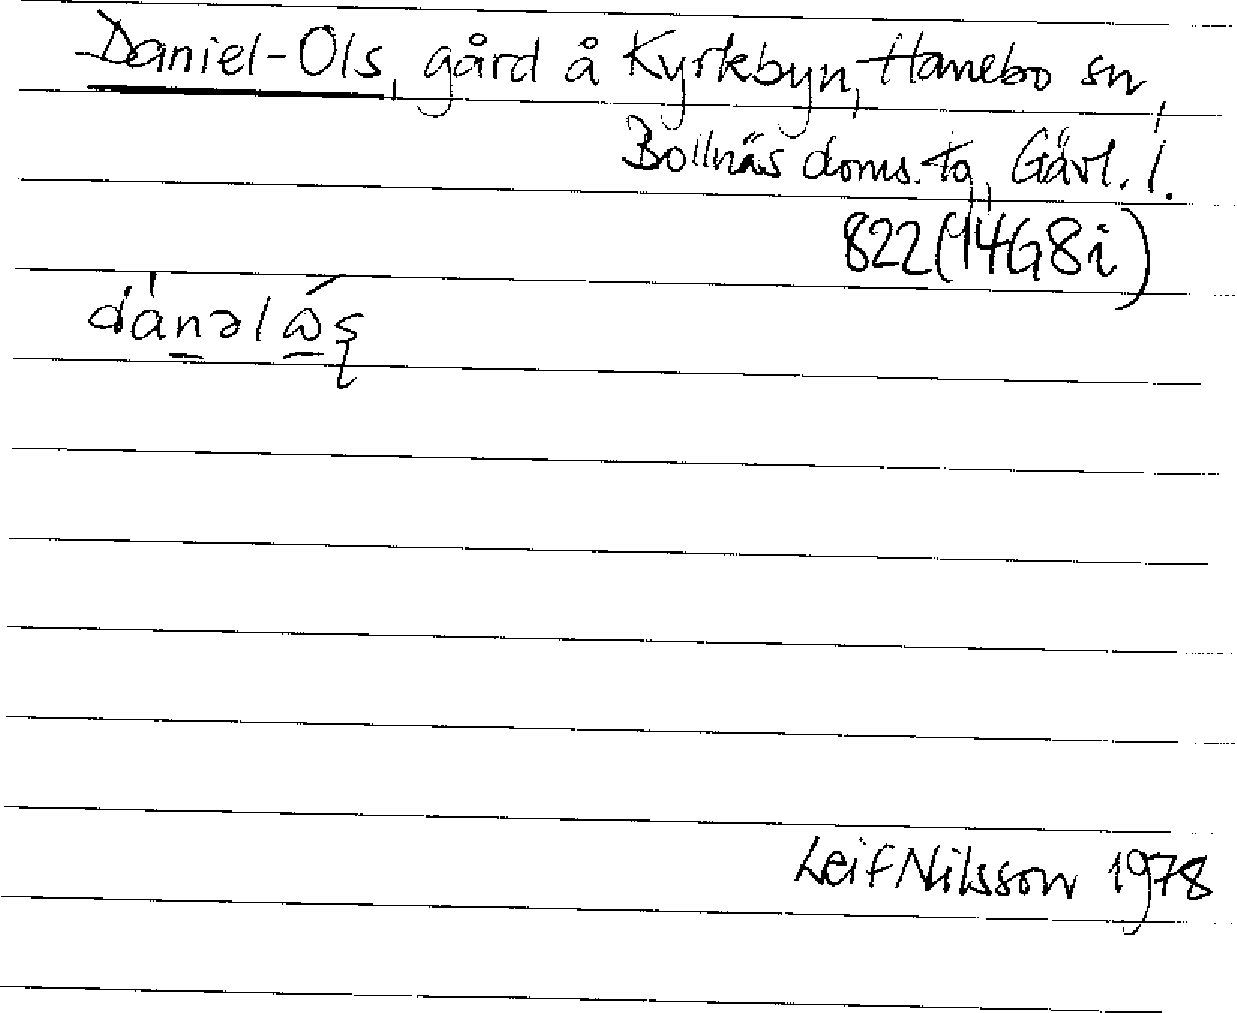 Daniel-Ols, gård å Kyrkbyn, Hanebo sn,
Bollnäs doms. tg, Gävl. l.
822(14G8i)
Leif Nilsson 1978